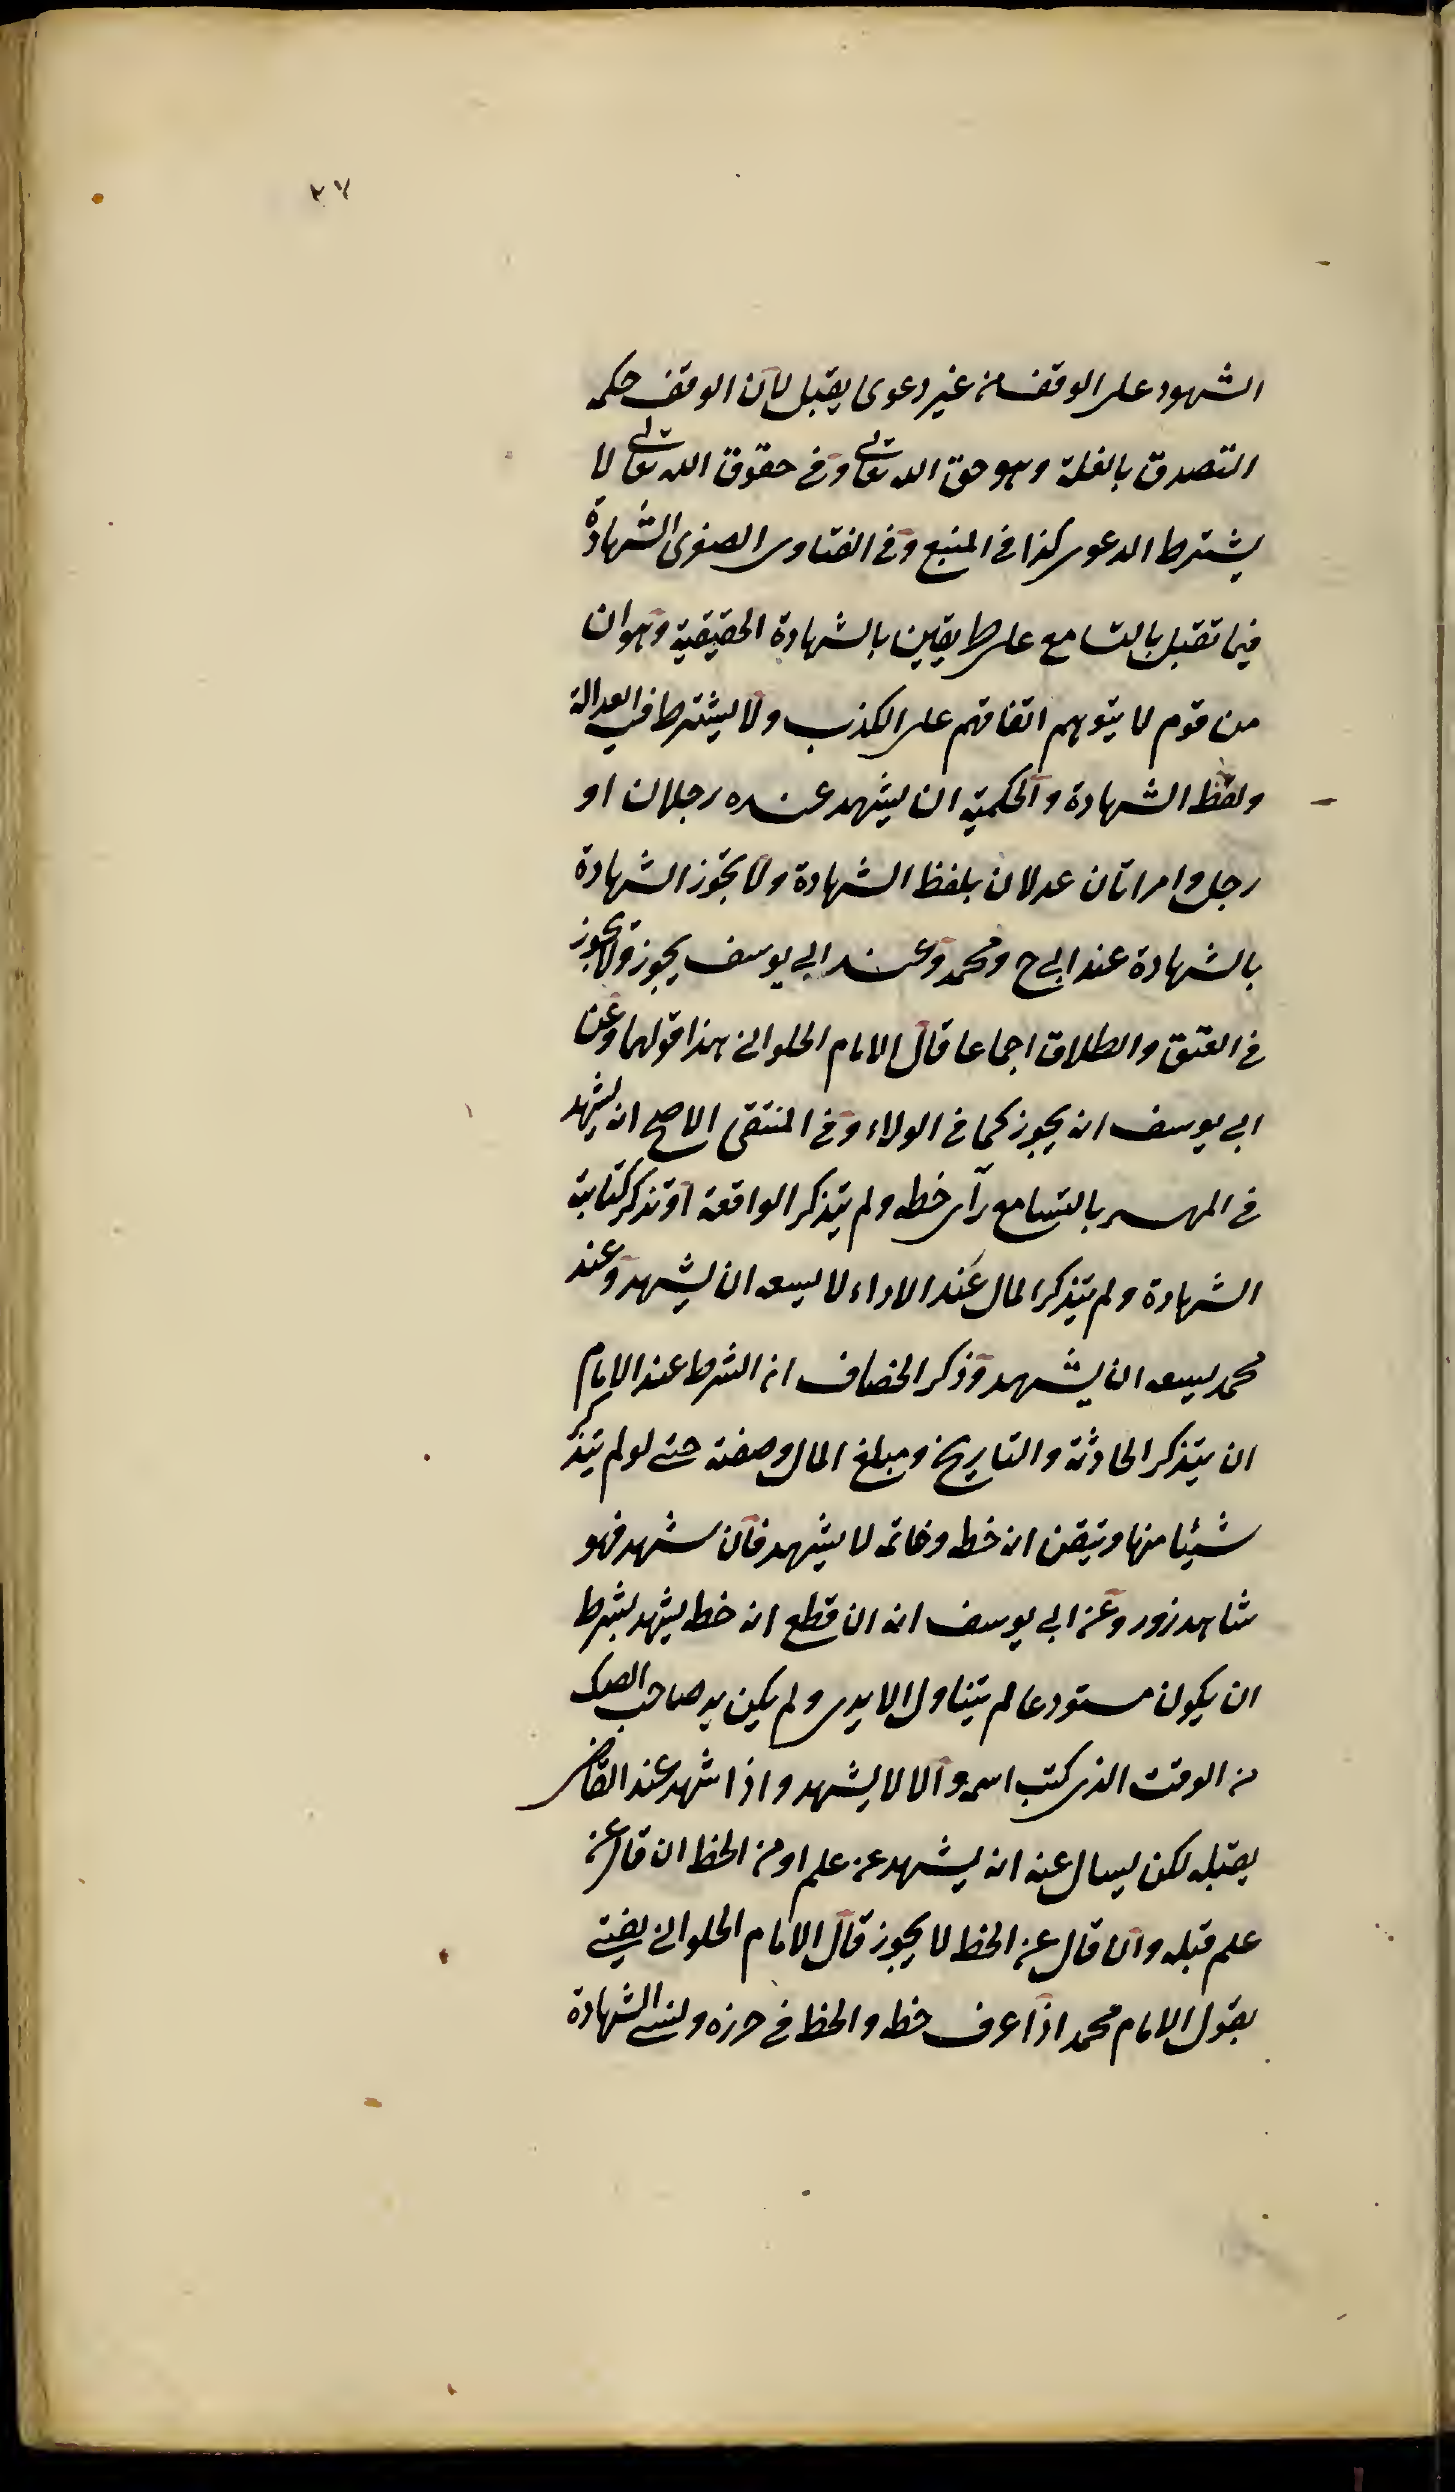 ٢٧
الشهود على الوقف من غير دعوى يقبل لان الوقف حكمه
التصدق بالغلة وهو حق الله تعالى وفى حقوق الله تعالى لا
يشترط الدعوى كذا فى المنبع وفى الفتاوى الصغرى الشهادة
فيما تقبل بالتسامع على طريقين بالشهادة الحقيقية وهو ان
من قوم لا يتوهم اتفاقهم على الكذب ولا يشترط فيه العدالة
ولفظ الشهادة والحكمية ان يشهد عنده رجلان او
رجل وامراتان عدلان بلفظ الشهادة ولا يجوز الشهادة
بالشهادة عند ابى ح ومحمد وعند ابى يوسف يجوز ولا يجوز
فى العتق والطلاق اجماعا قال الامام الحلوانى هذا قولهما وعن
ابى يوسف انه يجوز كما فى الولاء وفى المنتقى الاصح انه يشهد
فى المهر بالتسامع رأى خطه ولم يتذكر الواقعة او تذكر كتابة
الشهادة ولم يتذكر المال عند الاداء لا يسعه ان يشهد وعند
محمد يسعه ان يشهد وذكر الخصاف ان الشرط عند الامام
ان يتذكر الحادثة والتاريخ ومبلغ المال وصفته حتى لو لم يتذكر
شيئا منها وتيقن انه خطه وخاتمه لا يشهد فان شهد فهو
شاهد زور وعن ابى يوسف انه ان قطع انه خطه يشهد بشرط
ان يكون مستودعا لم يتناول الايدى ولم يكن بيد صاحب الصك
من الوقت الذى كتب اسمه والا لا يشهد واذا شهد عند القاضى
يقبله لكن يسال عنه انه يشهد عن علم او من الخط ان قال عن
علم قبله وان قال عن الخط لا يجوز قال الامام الحلوانى يفتى
بقول الامام محمد اذا عرف خطه والخط فى حرزه ونسى الشهادة